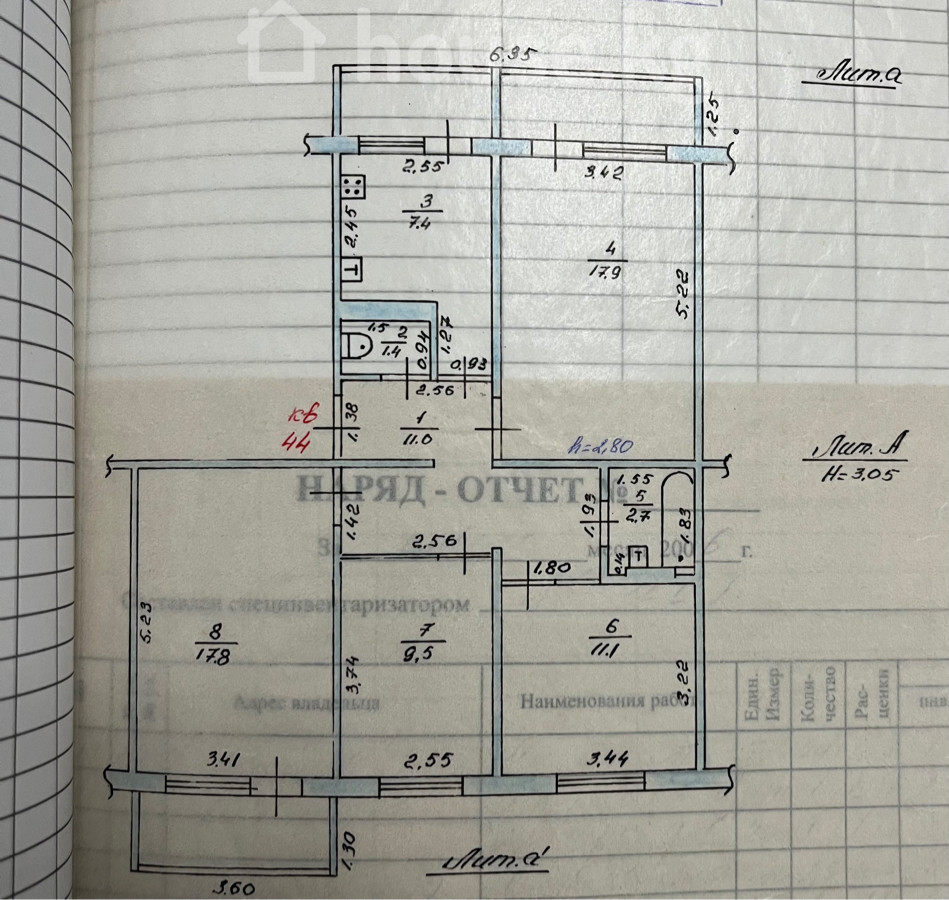 6.95
Лит.а
1.25
2,55
3.42
3
7.4
2.45
4
17.9
5,22
1.5
2
1.4
0.94
1.27
0.93
2.56
кв
44
1.38
1
11.0
h=2,80
Лит. А
H=3,05
НАРЯД - ОТЧЕТ №
1.55
5
2,7
1.93
1.83
1.42
2,56
За
200
г.
0.14
1.80
Составлен специнвентаризатором
5,23
8
17.8
7
9,5
6
11.1
3,74
3,22
Адрес владельца
Наименования работ
Един.
Измер
Коли-
чество
Рас-
ценки
3.41
2,55
3.44
1.30
Лит.а'
3.60